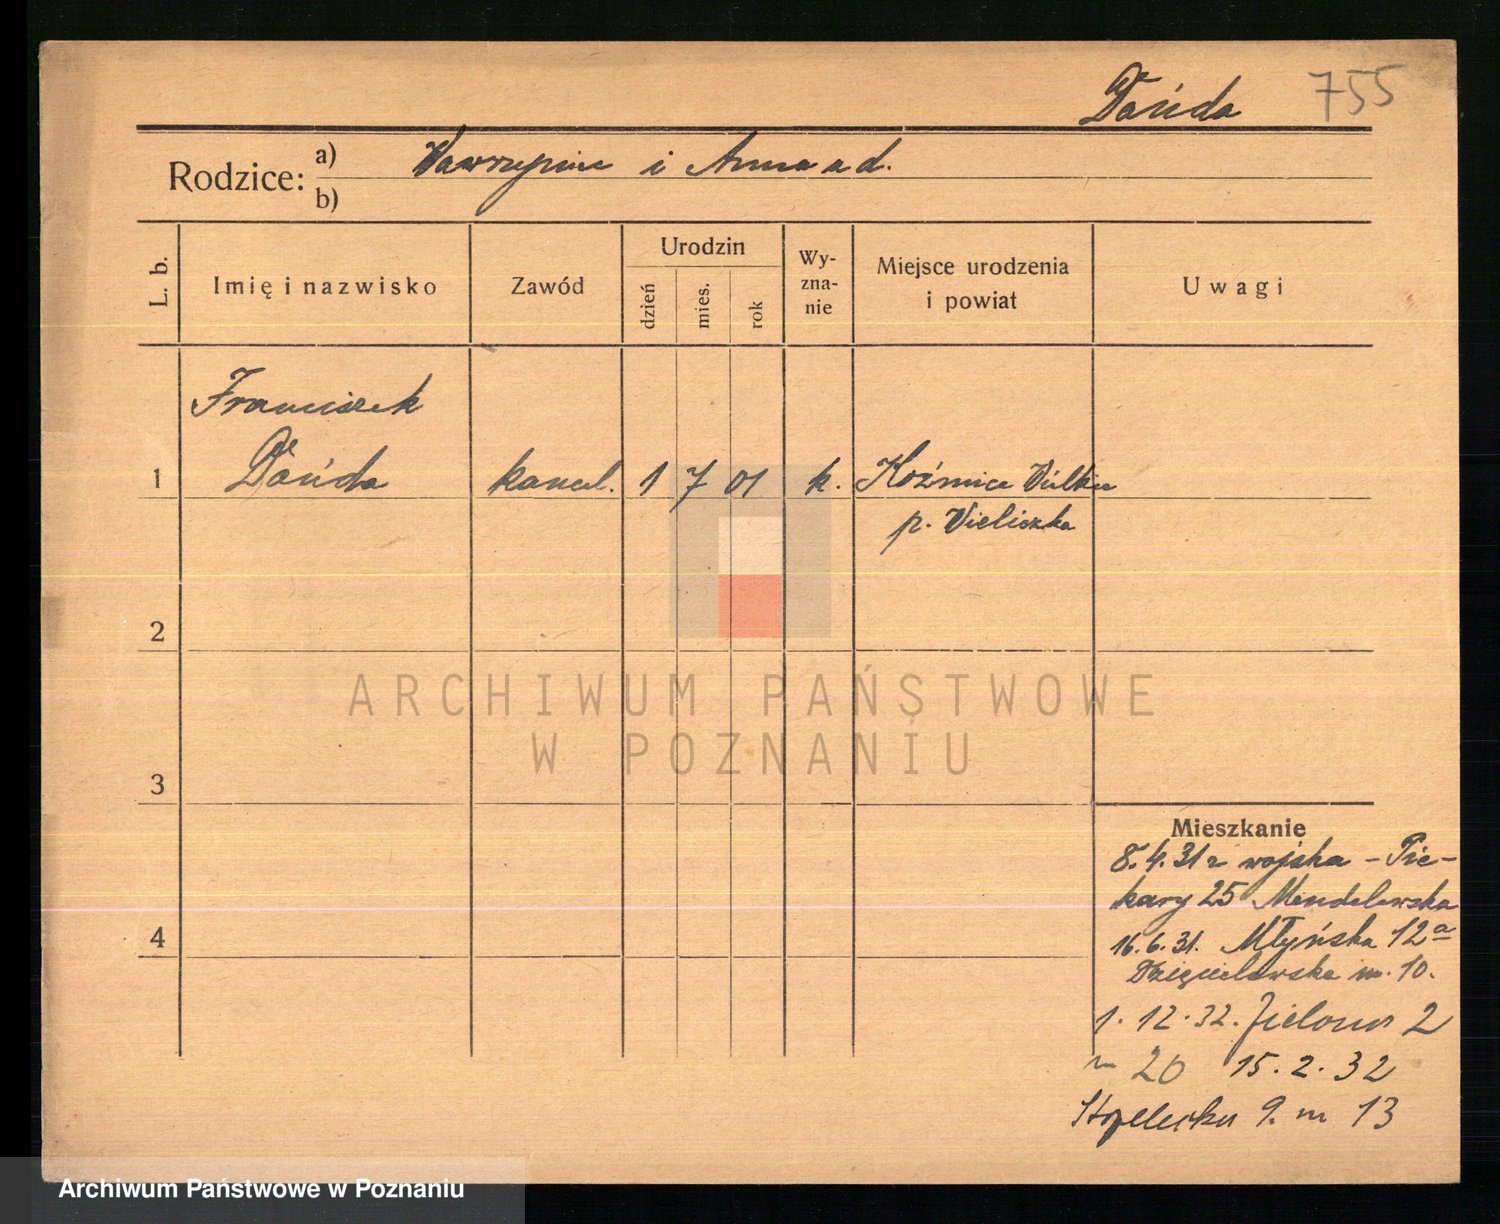 Dańda 755
Rodzice: a) Wawrzyniec i Anna ad.
b)
L. b. Imię i nazwisko Zawód Urodzin dzień mies. rok Wy-zna-nie Miejsce urodzenia i powiat Uwagi
Franciszek
1 Dańda kancel. 1 7 01 k. Koźmice Wielkie
p. Wieliczka
2
ARCHIWUM PAŃSTWOWE
W POZNANIU
3
Mieszkanie
8.4.31 z wojska - Pie-
kary 25 Mendelewska
4
16.6.31. Młyńska 12a
m. 10.
1.12.32. Zielona 2
m 20 15.2.32
Strzelecka 9. m 13
Archiwum Państwowe w Poznaniu